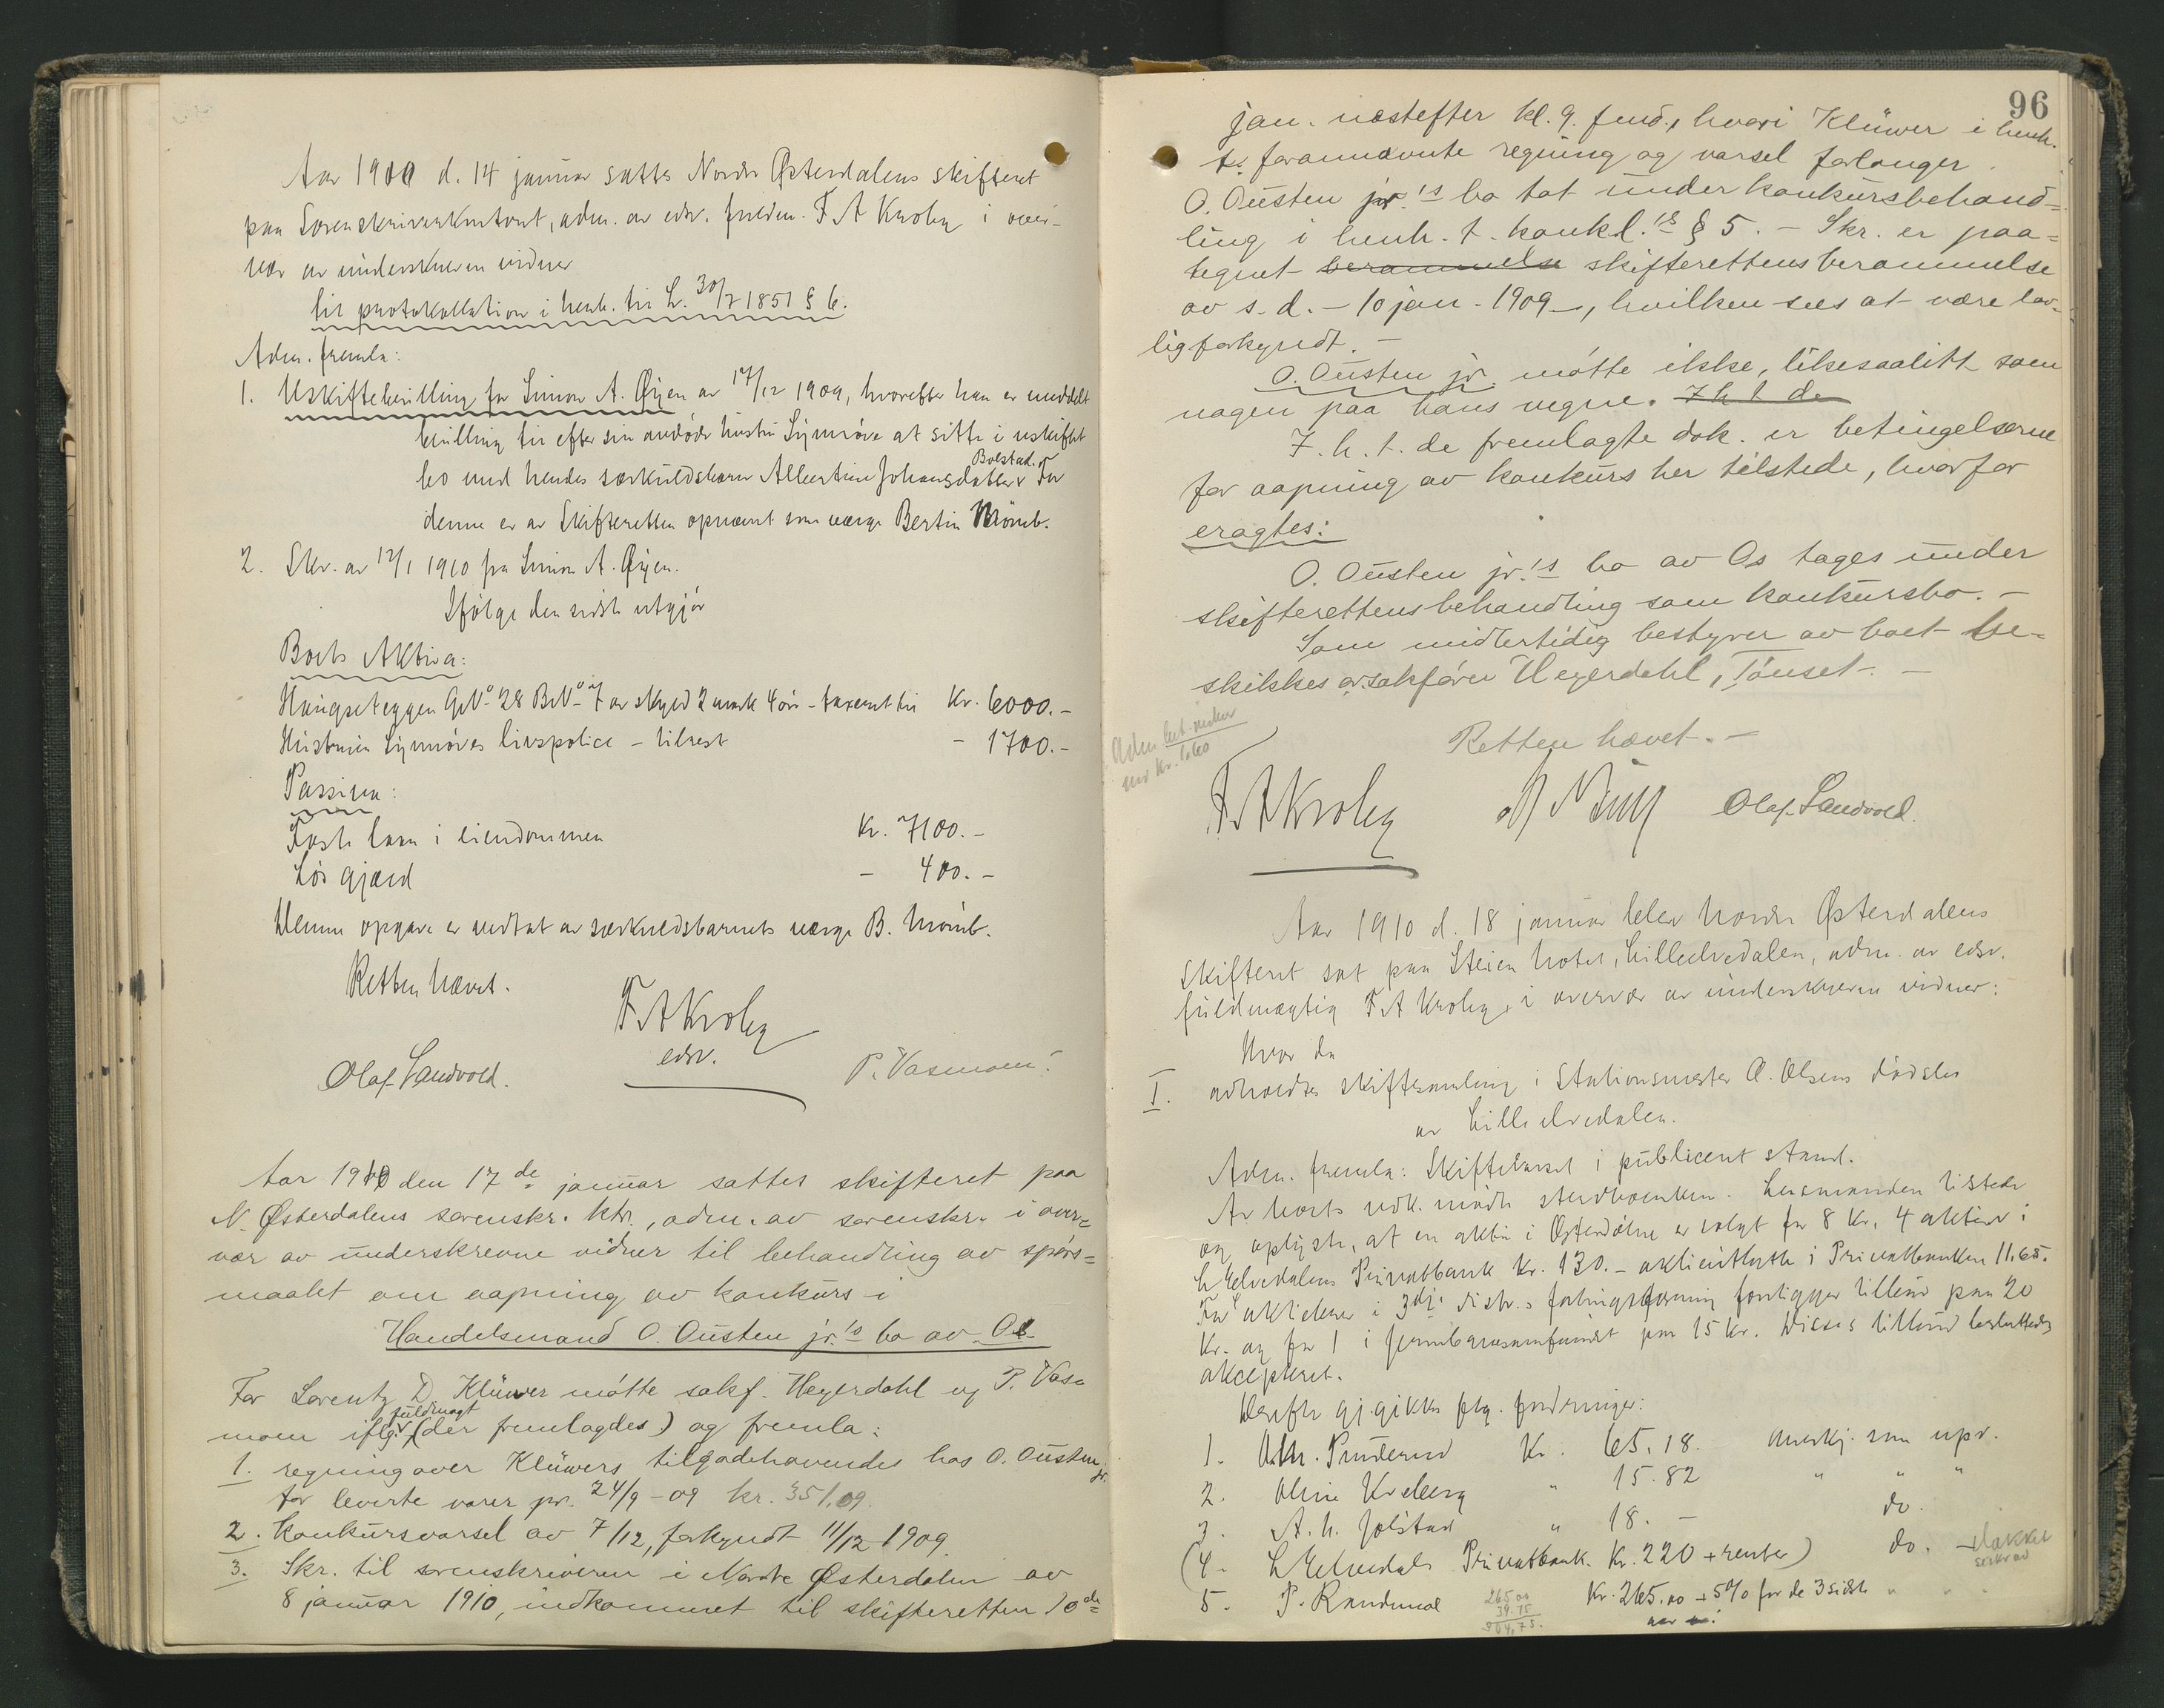 Aar 1910 d. 14 januar sattes Nordre Østerdalens skifteret
paa Sorenskriverkontoret, adm. av edsv. fuldm. F A Krohg i over-
vær av underskrevne vidner
til protokollation i henh. til L. 30/7 1851 § 6.
Adm. fremla:
1. Uskiftebevilling for Simon A. Øyen av 17/12 1909, hvorefter han er meddelt
bevilling til efter sin avdøde hustru Synnöve at sitte i uskiftet
bo med hendes særkuldsbarn Albertine Johansdatter Bolstad. For
denne er av Skifteretten opnævnt som værge Bertin
2. Skr. av 12/1 1910 fra Simon A. Øyen.
Ifølge den sidste utgjør
Boets Aktiva:
Haugseteggen GNo 28 BNo 7 av skyld 2 mark 4 øre - taxeret til Kr. 6000.-
Hustruen Synnöves livspolice - tilrest - 1700.-
Passiva:
Faste laan i eiendommen Kr. 7100.-
Løs gjæld - 400.-
Denne opgave er vedtat av særkuldsbarnets værge B.
Retten hævet.
F A Krohg
edsv.
Olaf Sandvold.
P. Vasmoen.
Aar 1910 den 17de januar sattes skifteret paa
N. Østerdalens sorenskr. ktr., adm. av sorenskr. i over=
vær av underskrevne vidner til behandling av spørs=
maalet om aapning av konkurs i
Handelsmand O. Ousten jr.'s bo av Os
For Lorentz D. Klüwer møtte sakf. Heyerdahl og P. Vas=
moen iflg. fuldmagt (der fremlagdes) og fremla:
1. regning over Klüwers tilgodehavende hos O. Ousten jr.
for leverte varer pr. 24/9 - 09 kr. 351,09.
2. Konkursvarsel av 7/12, forkyndt 11/12 1909.
3. Skr. til sorenskriveren i Nordre Østerdalen av
8 januar 1910, indkommet til skifteretten 10de
96
jan. næstefter kl. 9. fmd., hvori Klüwer i henh.
t. forannævnte regning og varsel forlanger
O. Ousten jr.'s bo tat under konkursbehand=
ling i henh. t. konkl.'s § 5. - Skr. er paa=
tegnet berammelse skifterettens berammelse
av s. d. - 10 jan. 1909 -, hvilken sees at være lov=
lig forkyndt. -
O. Ousten jr. møtte ikke, likesaalitt som
nogen paa hans vegne. I h t de
I. h. t. de fremlagte dok. er betingelserne
for aapning av konkurs her tilstede, hvorfor
eragtes:
O. Ousten jr.'s bo av Os tages under
skifterettens behandling som konkursbo. -
Som midlertidig bestyrer av boet be=
skikkes o.r.sakfører Heyerdahl, Tönset. -
Retten hævet. -
F A Krohg
Olaf Sandvold.
Aar 1910 d. 18 januar blev Nordre Østerdalens
Skifteret sat paa Steien Hotel, Lilleelvedalen, adm. av edsv.
fuldmægtig F A Krohg i overvær av underskrevne vidner:
Hvor da
I. avholdtes skiftesamling i Stationsmester O. Olsens dødsbo
av Lilleelvedalen.
Adm. fremla: Skiftevarsel i publicert stand.
Av boets vedk. mødte Lensmanden tilstede
og oplyste, at en aktie i Østerdølen er solgt for 8 Kr, 4 aktier i
L Elvedalens Privatbank Kr. 130.- aktieutbytte i Privatbanken 11.65.
For aktierne i 3dje distr.s foreligger tilbud paa 20
Kr. og for 1 i paa 15 Kr. Disse tilbud besluttedes
akcepteret.
Derefter gj.gikkes flg. fordringer:
1. Kr. 65.18. Anerkj. som upr.
2. Oline Kveberg " 15.82 " " "
3. A. h. Jolstad " 18.- do.
(4. L Elvedals Privatbank Kr. 220 + renter) do. -
5. P. Randmæl Kr. 265.00 + 5% for de 3 sidste " " "
aar
265 00
39.75
304,75.